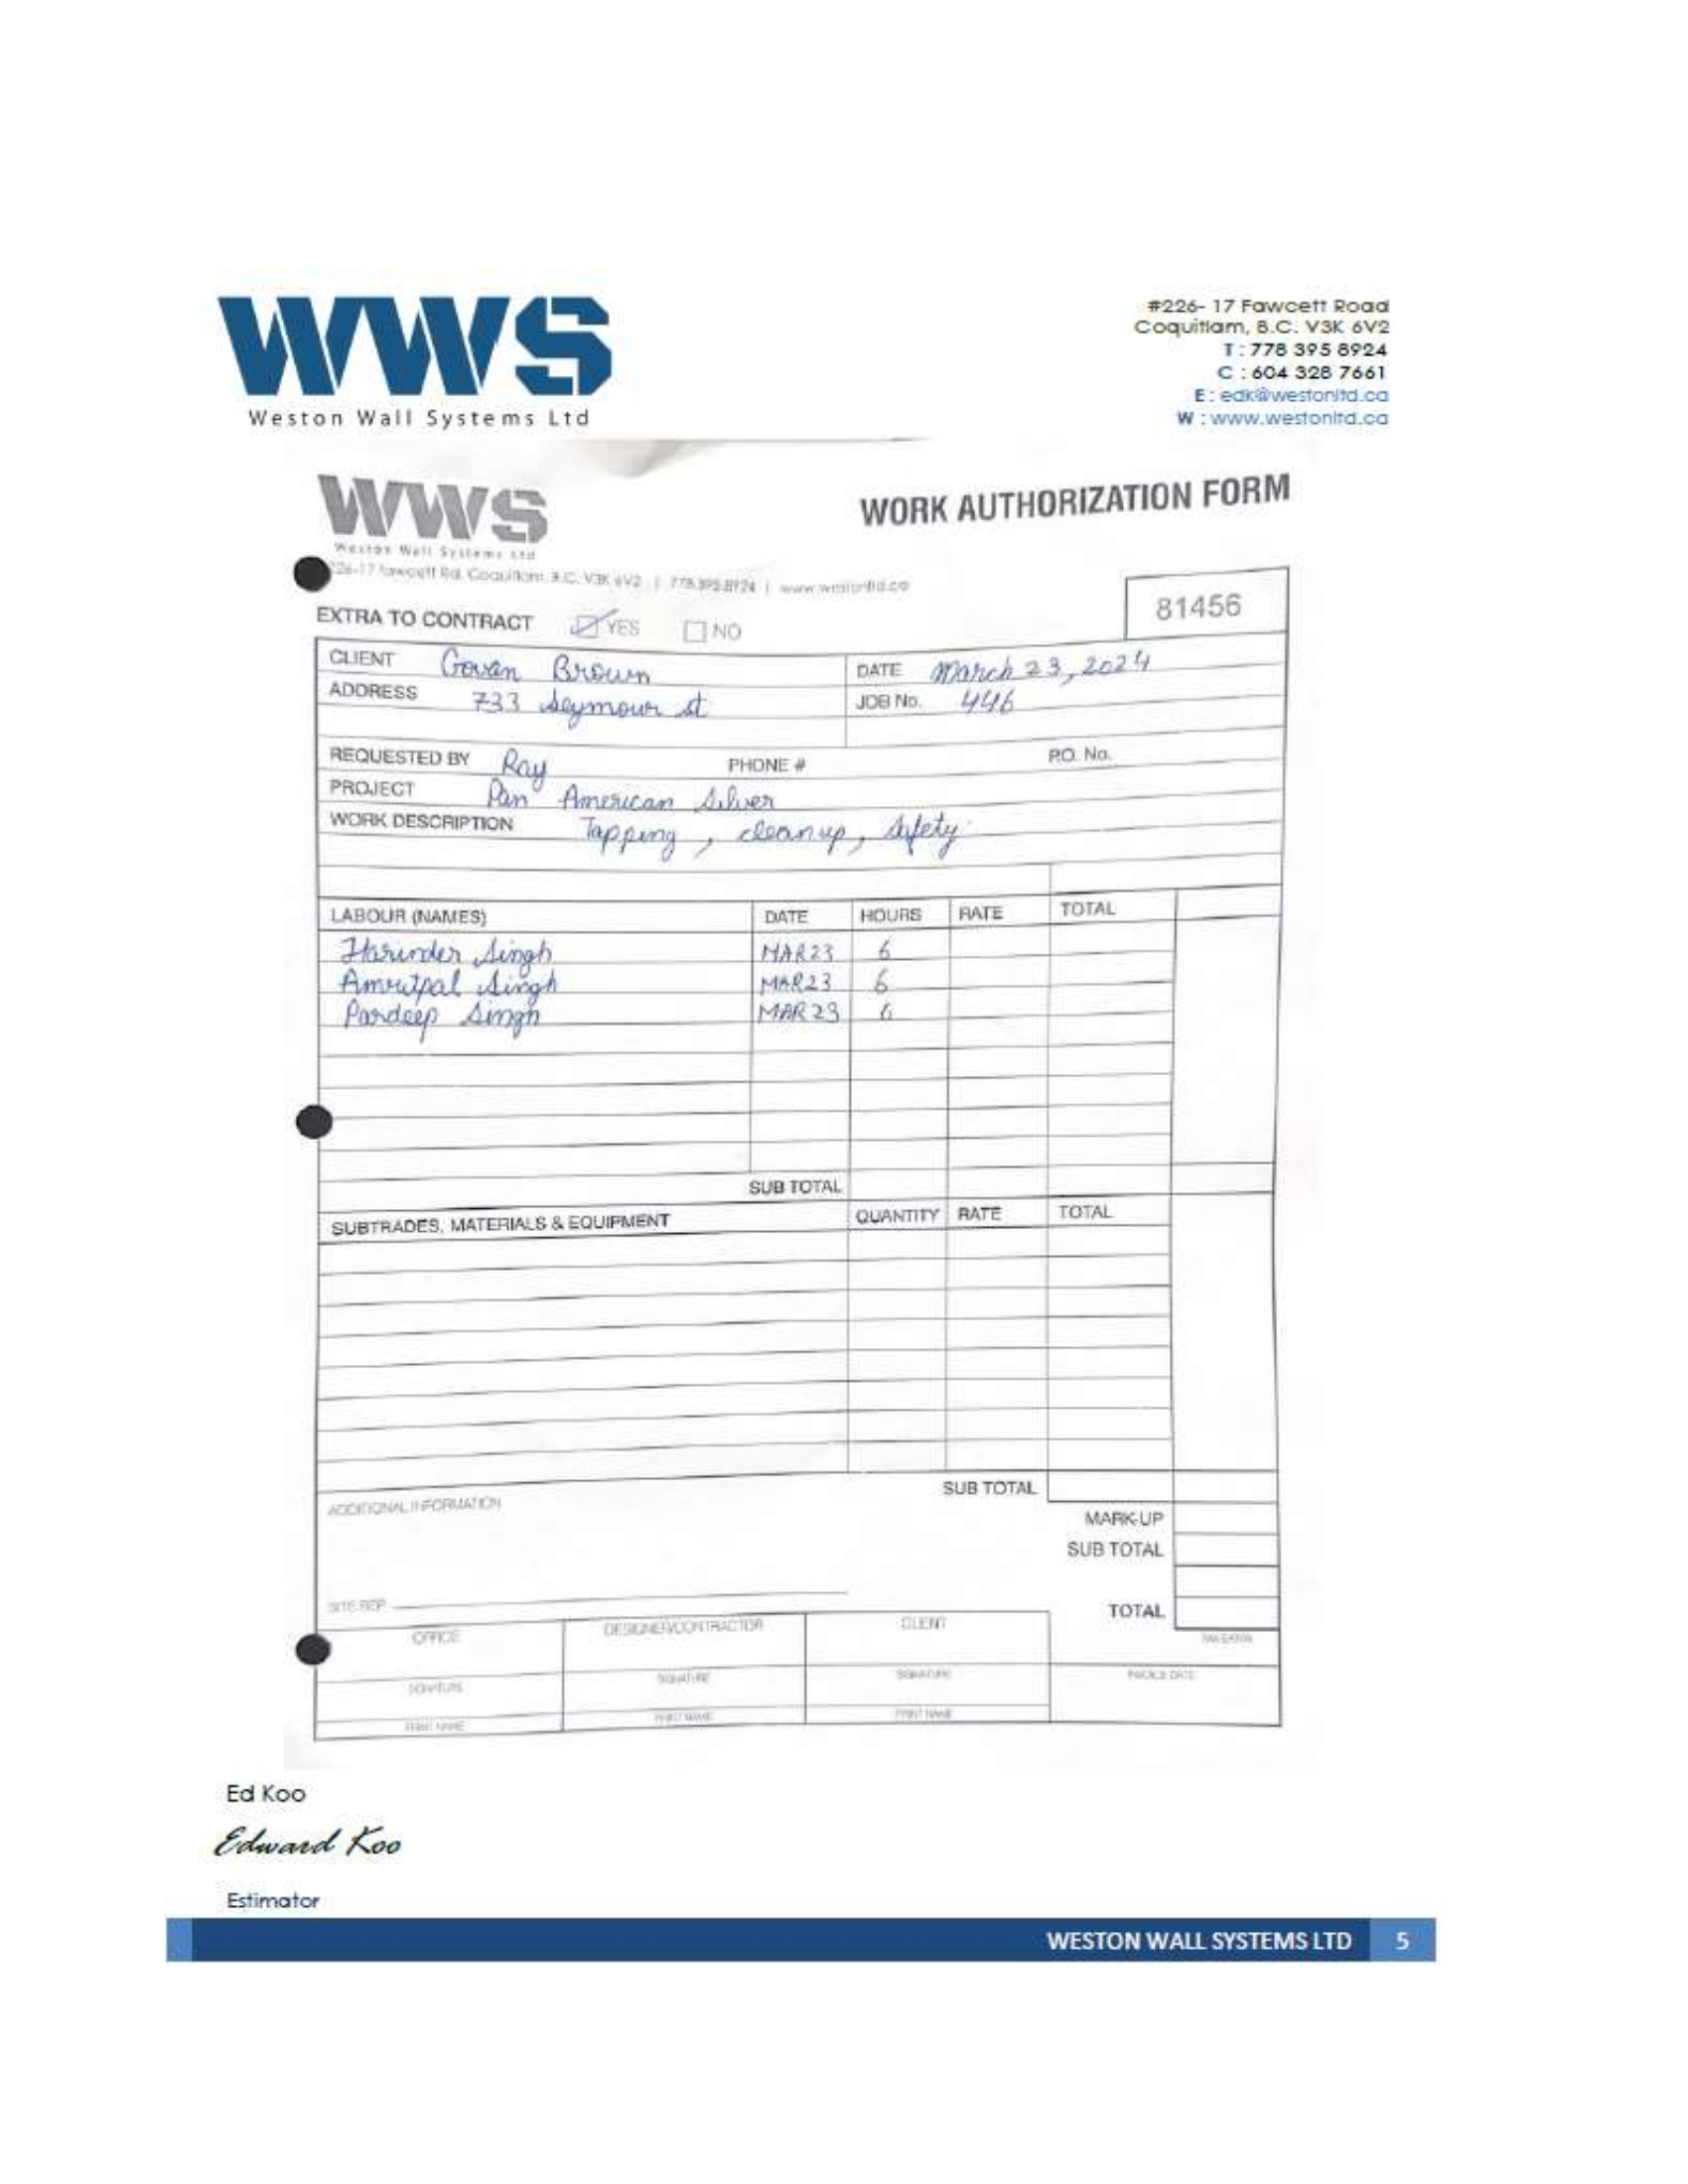 WWS
Weston Wall Systems Ltd
#226- 17 Fawcett Road
Coquitlam, B.C. V3K 6V2
T : 778 395 8924
C : 604 328 7661
E : edk@westonltd.ca
W : www.westonltd.ca
WWS
Weston Wall Systems Ltd
WORK AUTHORIZATION FORM
226-17 Fawcett Rd. Coquitlam, B.C. V3K 6V2 | 778.395.8924 | www.westonltd.ca
81456
EXTRA TO CONTRACT YES NO
CLIENT Govan Brown DATE March 23, 2024
ADDRESS 733 Seymour st JOB No. 446
REQUESTED BY Ray PHONE # P.O. No.
PROJECT Pan American Silver
WORK DESCRIPTION Tapping, cleanup, Safety
LABOUR (NAMES) DATE HOURS RATE TOTAL
Harinder Singh MAR23 6
Amritpal Singh MAR23 6
Pardeep Singh MAR 23 6
SUB TOTAL
SUBTRADES, MATERIALS & EQUIPMENT QUANTITY RATE TOTAL
SUB TOTAL
ADDITIONAL INFORMATION
MARK-UP
SUB TOTAL
SITE REP
TOTAL
OFFICE DESIGNER/CONTRACTOR CLIENT
SIGNATURE SIGNATURE SIGNATURE INVOICE DATE
PRINT NAME PRINT NAME PRINT NAME
Ed Koo
Edward Koo
Estimator
WESTON WALL SYSTEMS LTD 5